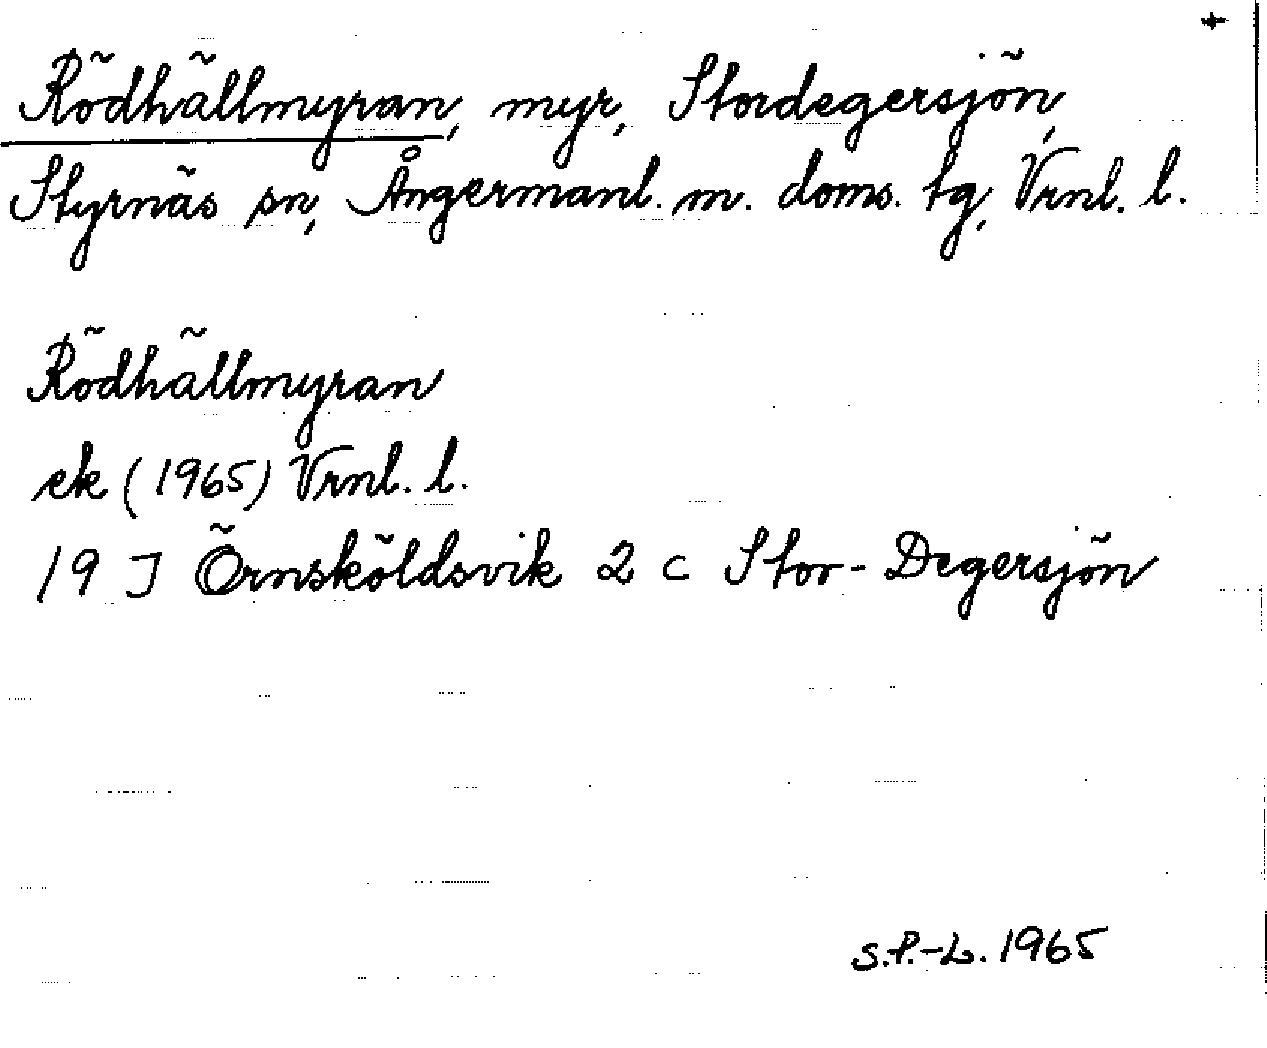 Rödhällmyran, myr, Stordegersjön,
Styrnäs sn, Ångermanl. m. doms. tg, Vrnl. l.
Rödhällmyran
ek (1965) Vrnl. l.
19 J Örnsköldsvik 2 c Stor-Degersjön
S.P.-L. 1965